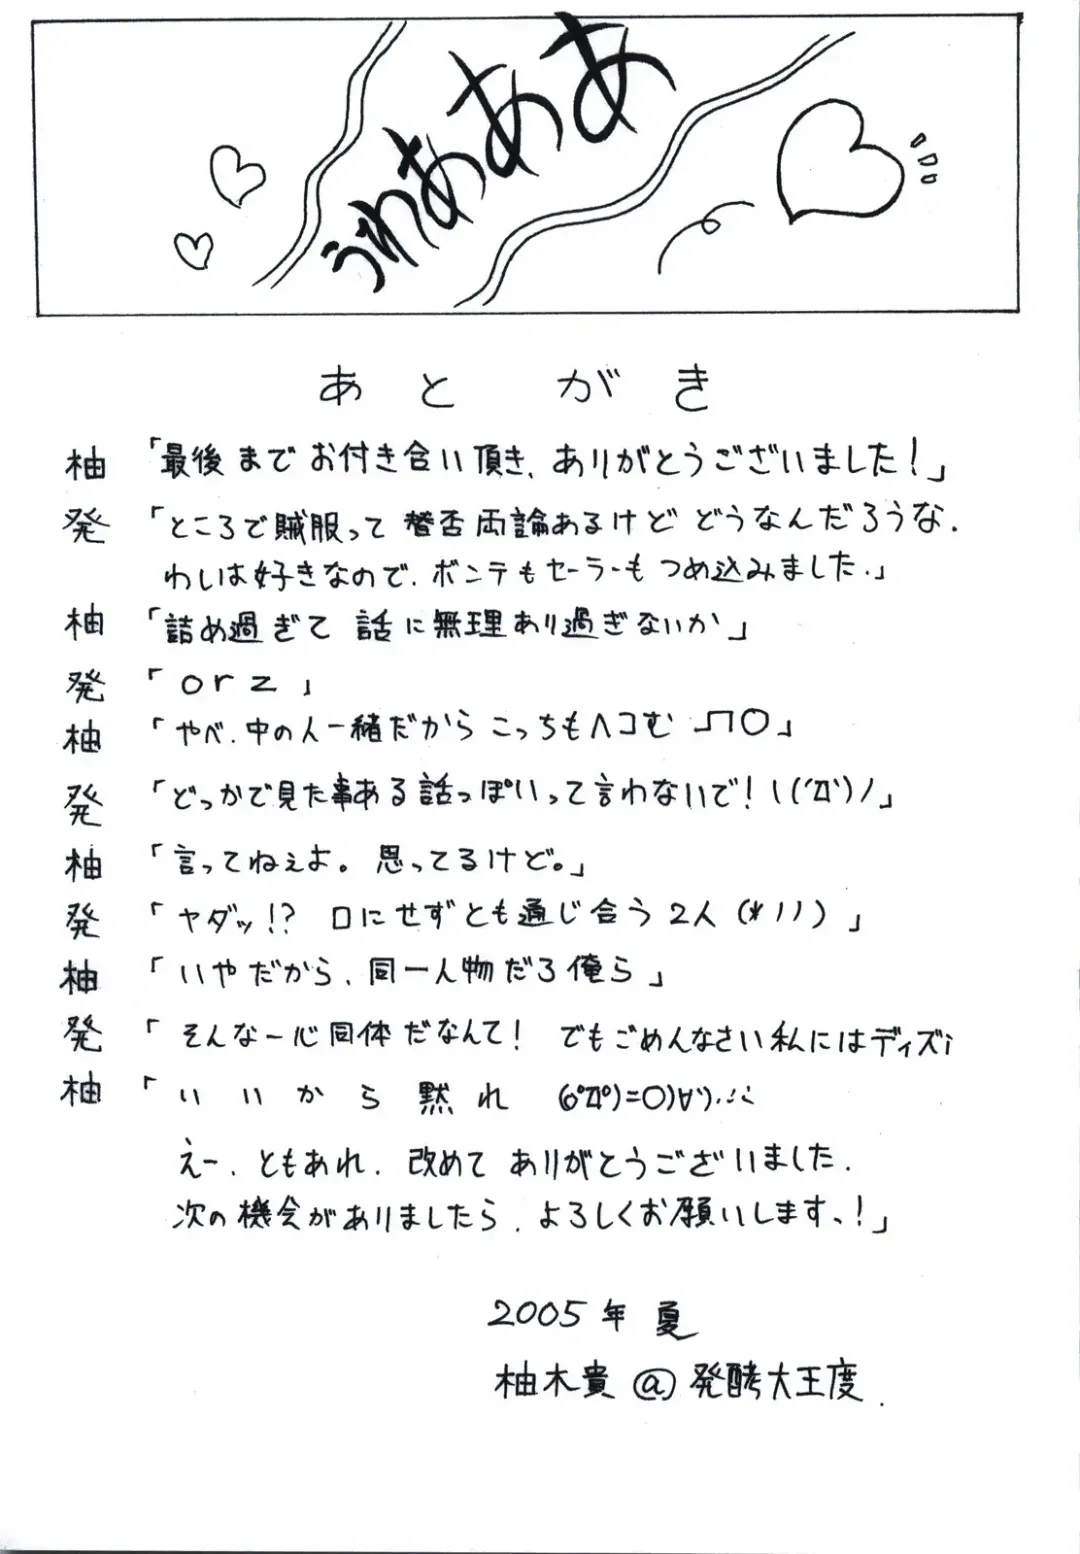 うわぁあああ
あとがき
柚「最後までお付き合い頂き、ありがとうございました!」
発「ところで賊服って賛否両論あるけどどうなんだろうな.
わしは好きなので、ボンテもセーラーもつめ込みました.」
柚「詰め過ぎて話に無理あり過ぎないか」
発「orz」
柚「やべ、中の人一緒だからこっちもヘコむ _| ̄|○」
発「どっかで見た事ある話っぽいって言わないで!ヽ(´Д`)ノ」
柚「言ってねぇよ。思ってるけど。」
発「ヤダッ!? 口にせずとも通じ合う2人(*ノノ)」
柚「いやだから、同一人物だろ俺ら」
発「そんな一心同体だなんて! でもごめんなさい私にはディズi
柚「いいから黙れ (6゜Д゜)=O)∀`).∴
えー、ともあれ、改めてありがとうございました.
次の機会がありましたら、よろしくお願いしますっ!」
2005年 夏
柚木貴@発酵大王度.